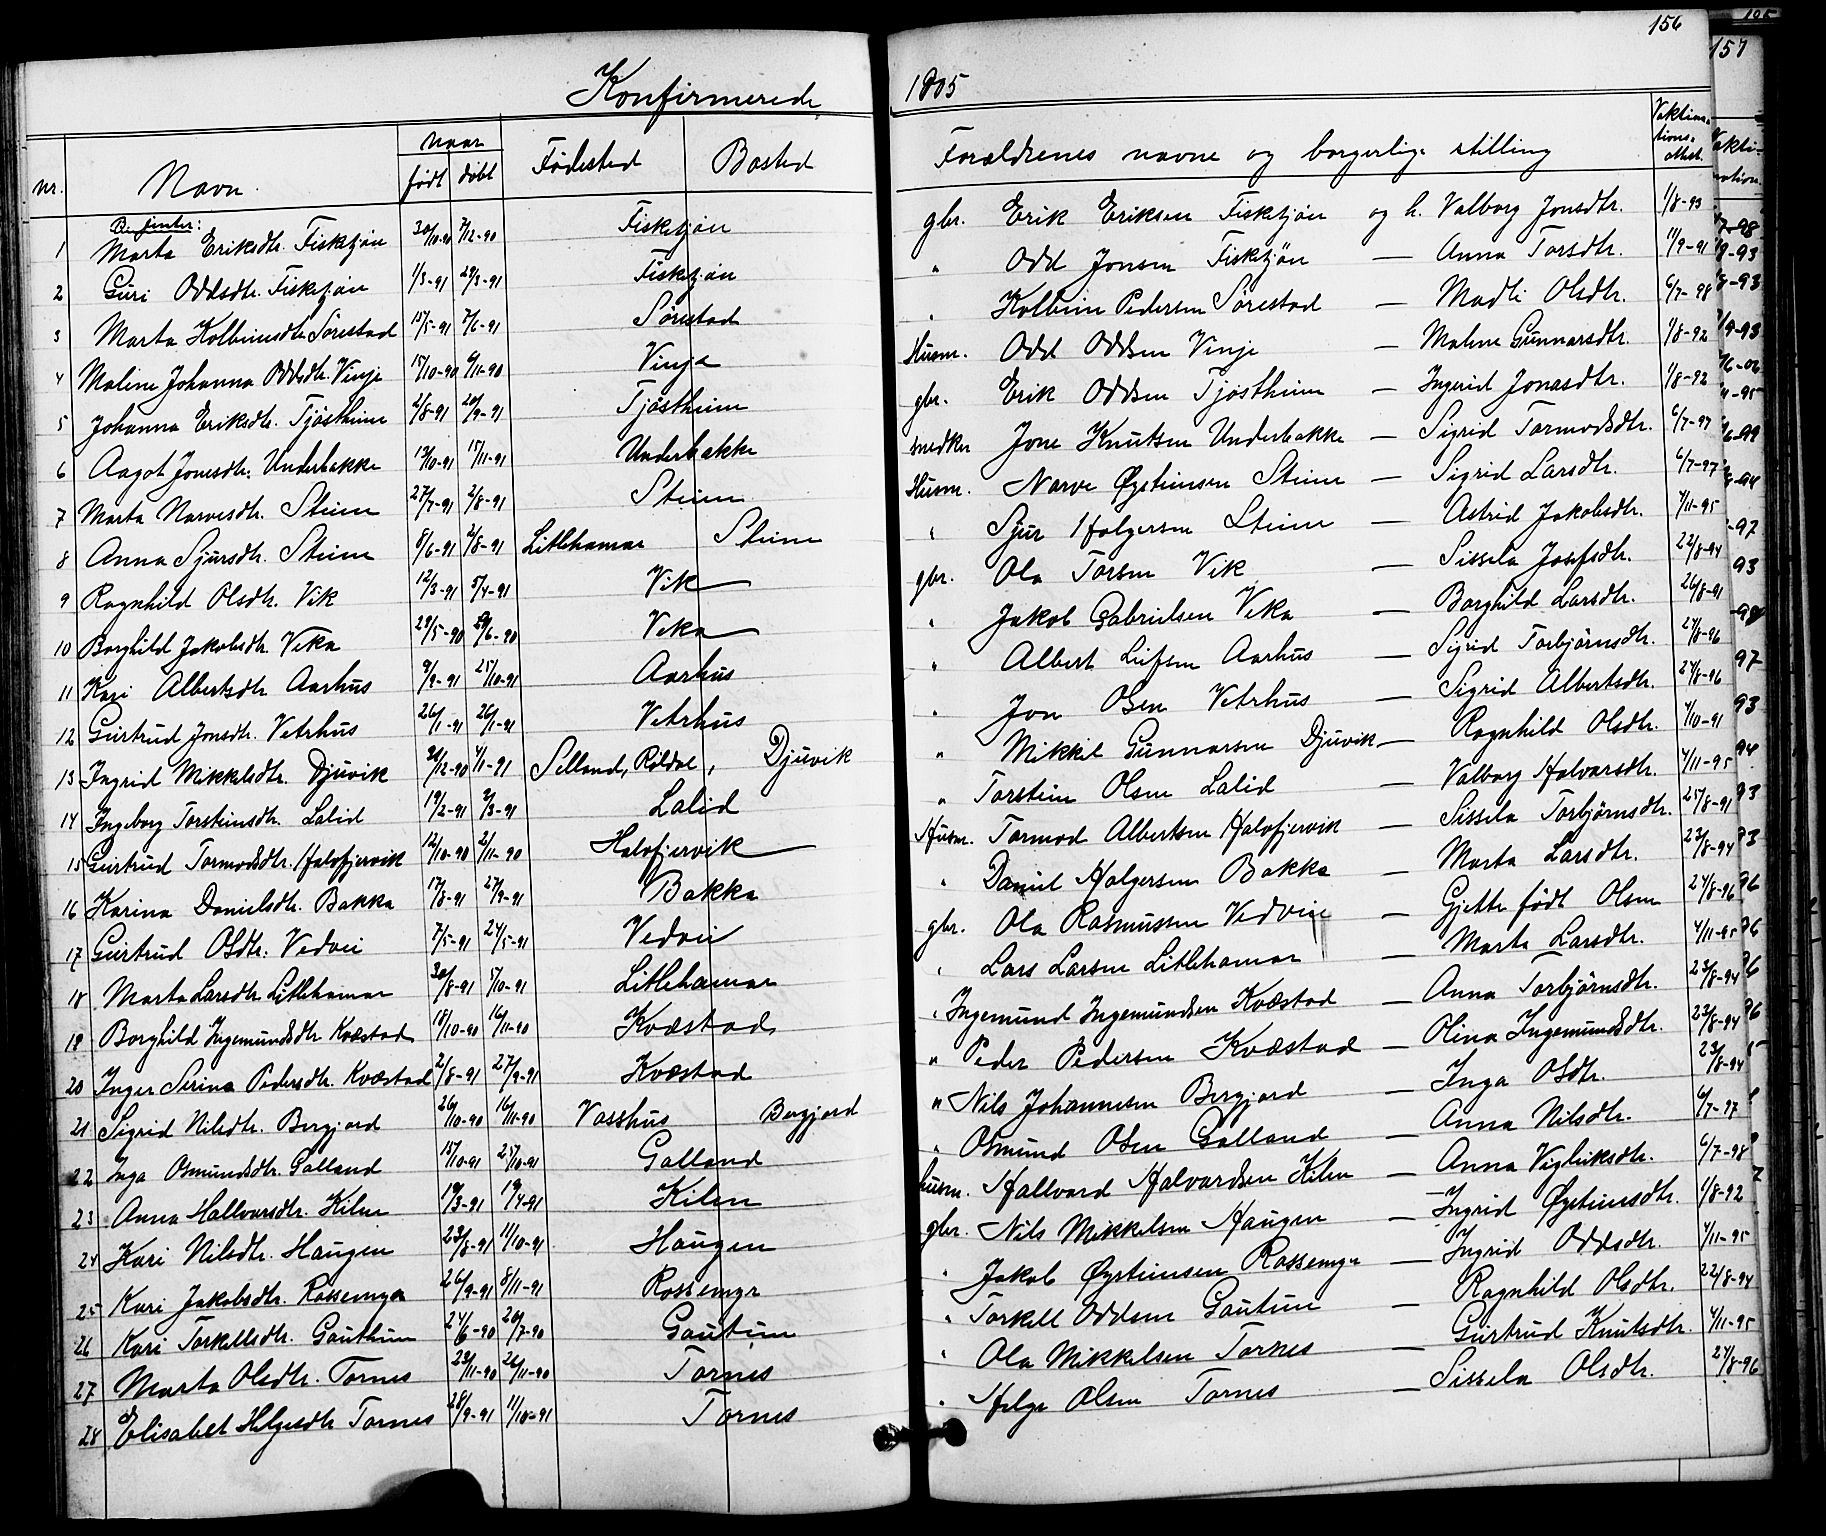 156
Konfirmerede 1905
nr. Navn. Naar født døbt Fødested Bosted Forældrenes navne og borgerlige stilling
157
1 Marta Eriksdtr. Fisketjøn 7/12-90 Fisketjøn gbr. Erik Eriksen Fisketjøn og h. Valborg Jonsdtr. 1/8-93
2 Guri Oddsdtr. Fisketjøn 1/3-91 29/3-91 Fisketjøn " Odd Jonsen Fisketjøn — Anna Torsdtr. 11/9-91
3 Marta Kolbeinsdtr. Sørestad 15/5-91 7/6-91 Sørestad " Kolbein Pedersen Sørestad — Madli Olsdtr. 6/7-98
4 Maline Johanna Oddsdtr. Vinje 15/10-90 9/11-90 Vinje Husm. Odd Oddsen Vinje — Malene Gunnarsdtr. 1/8-92
5 Johanna Eriksdtr. Tjøstheim 2/8-91 20/9-91 Tjøstheim gbr. Erik Oddsen Tjøstheim — Ingerid Jonasdtr. 1/8-92
6 Aagot Jonesdtr. Underbakke 13/10-91 15/11-91 Underbakke snedker Jone Knutsen Underbakke — Sigrid Tormodsdtr. 6/7-97
7 Marta Narvesdtr. Steine 27/7-91 2/8-91 Steine Husm. Narve Øysteinsen Steine — Sigrid Larsdtr. 6/7-97
8 Anna Sjursdtr. Steine 8/6-91 2/8-91 Litlehamar Steine " Sjur Holgersen Steine — Astrid Jakobsdtr. 4/11-95
9 Ragnhild Olsdtr. Vik 12/3-91 5/4-91 Vik gbr. Ola Torsen Vik — Sissela Josefsdtr. 22/8-94
10 Borghild Jakobsdtr. Veka 29/5-90 29/6-90 Veka " Jakob Gabrielsen Veka — Borghild Larsdtr. 26/8-91
11 Kari Albertsdtr. Aarhus 9/9-91 25/10-91 Aarhus " Albert Leifsen Aarhus — Sigrid Torbjørnsdtr. 24/8-96
12 Gurtrud Jonsdtr. Vetrhus 26/1-91 26/1-91 Vetrhus " Jon Olsen Vetrhus — Sigrid Albertsdtr. 24/8-96
13 Ingrid Mikkelsdtr. Djuvik 4/1-91 Selland, Røldal, Djuvik " Mikkel Gunnarsen Djuvik — Ragnhild Olsdtr. 4/10-91
14 Ingeborg Torsteinsdtr. Lalid 19/2-91 Lalid " Torstein Olsen Lalid — Valborg Halvarsdtr. 4/11-95
15 Gurtrud Tormodsdtr. Halofjervik 12/10-90 2/11-90 Halofjervik Husm. Tormod Albertsen Halofjervik — Sissela Torbjørnsdtr. 25/8-91
16 Karina Danielsdtr. Bakka 17/8-91 27/9-91 Bakka " Daniel Holgersen Bakka — Marta Larsdtr. 23/8-94
17 Gurtrud Olsdtr. Vedvei 7/5-91 24/5-91 Vedvei gbr. Ola Rasmussen Vedvei — Gjette født Olsen 24/8-96
18 Marta Larsdtr. Litlehamar 30/8-91 5/10-91 Litlehamar " Lars Larsen Litlehamar — Marta Larsdtr. 4/11-95
19 Borghild Ingemundsdtr. Kvæstad 18/10-90 16/11-90 Kvæstad " Ingemund Ingemundsen Kvæstad — Anna Torbjørnsdtr. 23/8-94
20 Inger Serina Pedersdtr. Kvæstad 2/8-91 27/9-91 Kvæstad " Peder Pedersen Kvæstad — Olina Ingemundsdtr. 23/8-94
21 Sigrid Nilsdtr. Bergjord 26/10-90 16/11-90 Vasshus Bergjord " Nils Johannesen Bergjord — Inga Olsdtr. 23/8-94
22 Inga Osmundsdtr. Galland 15/10-91 25/10-91 Galland " Osmund Olsen Galland — Anna Nilsdtr. 6/7-97
23 Anna Hallvarsdtr. Kilen 19/3-91 19/4-91 Kilen husm. Hallvard Halvardsen Kilen — Anna Vigleiksdtr. 6/7-98
24 Kari Nilsdtr. Haugen 23/8-91 11/10-91 Haugen gbr. Nils Mikkelsen Haugen — Ingrid Øysteinsdtr. 1/8-92
25 Kari Jakobsdtr. Rossemyr 26/9-91 8/11-91 Rossemyr " Jakob Øysteinsen Rossemyr — Ingrid Oddsdtr. 4/11-95
26 Kari Torkellsdtr. Gautheim 24/6-90 20/7-90 Gauteim " Torkell Oddsen Gauteim — Ragnhild Olsdtr. 22/8-94
27 Marta Olsdtr. Tornes 23/11-90 26/11-90 Tornes " Ola Mikkelsen Tornes — Gurtrud Knutsdtr. 4/11-95
28 Elisabet Helgesdtr. Tornes 28/9-91 11/10-91 Tornes " Helge Olsen Tornes — Sissela Olsdtr. 24/8-96